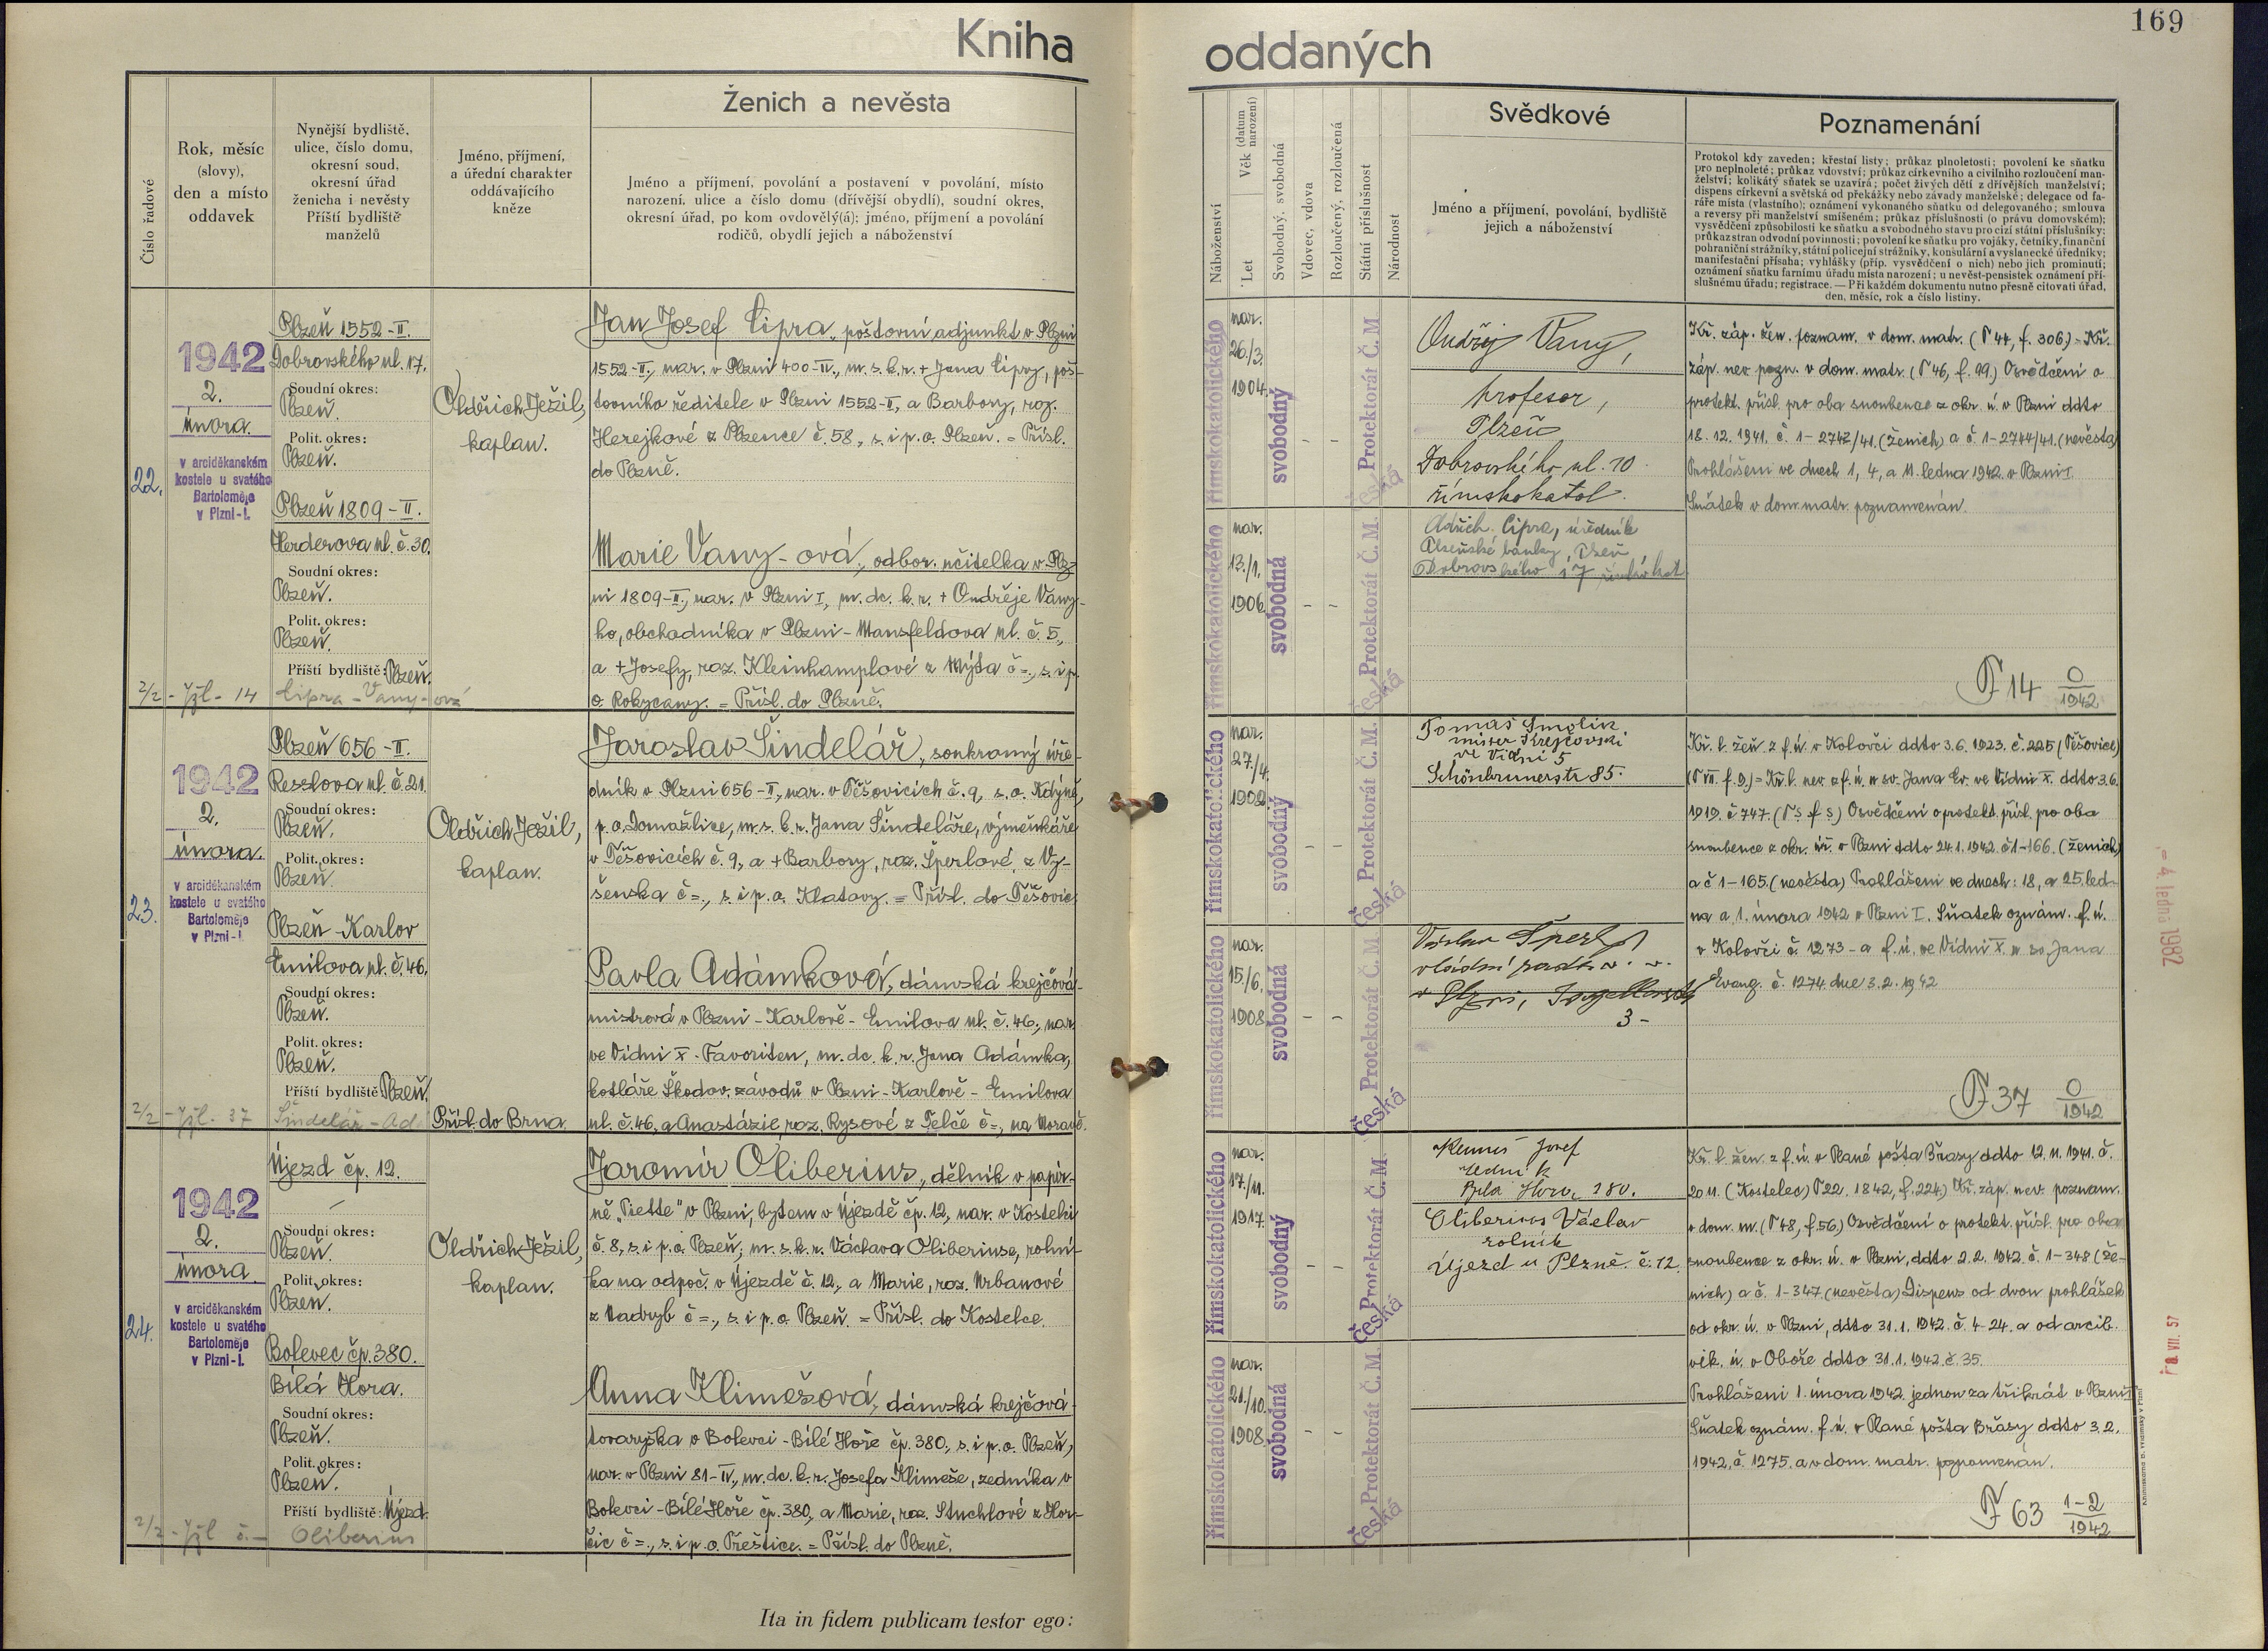 169
Kniha oddaných
Číslo řadové
Rok, měsíc
(slovy),
den a místo
oddavek
Nynější bydliště,
ulice, číslo domu,
okresní soud,
okresní úřad
ženicha i nevěsty
Příští bydliště
manželů
Jméno, příjmení,
a úřední charakter
oddávajícího
kněze
Ženich a nevěsta
Jméno a příjmení, povolání a postavení v povolání, místo
narození, ulice a číslo domu (dřívější obydlí), soudní okres,
okresní úřad, po kom ovdovělý(á); jméno, příjmení a povolání
rodičů, obydlí jejich a náboženství
Náboženství
Věk (datum narození)
Let
Svobodný, svobodná
Vdovec, vdova
Rozloučený, rozloučená
Státní příslušnost
Národnost
Svědkové
Jméno a příjmení, povolání, bydliště
jejich a náboženství
Poznamenání
Protokol kdy zaveden; křestní listy; průkaz plnoletosti; povolení ke sňatku
pro neplnoleté; průkaz vdovství; průkaz církevního a civilního rozloučení man-
želství; kolikátý sňatek se uzavírá; počet živých dětí z dřívějších manželství;
dispens církevní a světská od překážky nebo závady manželské; delegace od fa-
ráře místa (vlastního); oznámení vykonaného sňatku od delegovaného; smlouva
a reversy při manželství smíšeném; průkaz příslušnosti (o právu domovském);
vysvědčení způsobilosti ke sňatku a svobodného stavu pro cizí státní příslušníky;
průkaz stran odvodní povinnosti; povolení ke sňatku pro vojáky, četníky, finanční
pohraniční strážníky, státní policejní strážník, konsulární a vyslanecké úředníky;
manifestační přísaha; vyhlášky (příp. vysvědčení o nich) nebo jich prominutí;
oznámení sňatku farnímu úřadu místa narození; u nevěst-pensistek oznámení pří-
slušnému úřadu; registrace. — Při každém dokumentu nutno přesně citovati úřad,
den, měsíc, rok a číslo listiny.
22.
1942
2.
února.
v arciděkanském
kostele u svatého
Bartoloměje
v Plzni-I.
Plzeň 1552-II.
Dobrovského ul. 17.
Soudní okres:
Plzeň.
Polit. okres:
Plzeň.
Plzeň 1809-II.
Herderova ul. č. 30.
Soudní okres:
Plzeň.
Polit. okres:
Plzeň.
Příští bydliště: Plzeň.
2/2 - 14 Cipra - Vany-ová
Oldřich Ježil,
kaplan.
Jan Josef Cipra, poštovní adjunkt v Plzni
1552-II., nar. v Plzni 400-IV., m. s. k. r. + Jana Cipry, poš-
tovního ředitele v Plzni 1552-II, a Barbory, roz.
Herejkové z Plzence č. 58., s. i p. o. Plzeň. = Přísl.
do Plzně.
Marie Vany-ová, odbor. učitelka v Plz-
ni 1809-II., nar. v Plzni I., m. dc. k. r. + Ondřeje Vany-
ho, obchodníka v Plzni - Mansfeldova ul. č. 5,
a + Josefy, roz. Kleinhamplové z Mýta č=., s. i p.
o. Rokycany. = Přísl. do Plzně.
římskokatolického
nar.
26./3.
1904.
svobodný
- -
Protektorát Č. M
česká
římskokatolického
nar.
13./1.
1906.
svobodná
- -
Protektorát Č. M.
česká
Ondřej Vany,
profesor,
Plzeň
Dobrovského ul. 10.
římskokatol.
Cipra, úředník
Plzeňské banky, Plzeň,
Dobrovského 17
Kř. záp. žen. poznam. v dom. matr. (T 44, f. 306.) = Kř.
záp. nev. pozn. v dom. matr. (T 46, f. 99.) Osvědčení o
protekt. přísl. pro oba snoubence z okr. ú. v Plzni ddto
18. 12. 1941. č. 1-2742/41. (ženich) a č. 1-2744/41. (nevěsta)
Prohlášeni ve dnech 1, 4, a 11. ledna 1942. v Plzni I.
Sňatek v dom. matr. poznamenán.
F 14 0/1942
23.
1942
2.
února.
v arciděkanském
kostele u svatého
Bartoloměje
v Plzni-I.
Plzeň 656-II.
Resslova ul. č. 21.
Soudní okres:
Plzeň.
Polit. okres:
Plzeň.
Plzeň-Karlov
Emilova ul. č. 46.
Soudní okres:
Plzeň.
Polit. okres:
Plzeň.
Příští bydliště Plzeň.
2/2 - 37 Šindelář - Ad
Oldřich Ježil,
kaplan.
Přísl. do Brna.
Jaroslav Šindelář, soukromý úře-
dník v Plzni 656-II., nar. v Těšovicích č. 9, s. o. Kdyně,
p. o. Domažlice, m. s. k. r. Jana Šindeláře, výměnkáře
v Těšovicích č. 9., a + Barbory, roz. Šperlové, z Vy-
šenska č=., s. i p. o. Klatovy. = Přísl. do Těšovic.
Pavla Adámková, dámská krejčová-
mistrová v Plzni-Karlově-Emilova ul. č. 46., nar.
ve Vídni X-Favoriten, m. dc. k. r. Jana Adámka,
kotláře Škodov. závodů v Plzni-Karlově-Emilova
ul. č. 46, a Anastázie, roz. Rysové z Telče č=., na Moravě.
římskokatolického
nar.
27./4.
1902.
svobodný
- -
Protektorát Č. M.
česká
římskokatolického
nar.
15./6.
1908.
svobodná
- -
Protektorát Č. M
česká
Tomáš Smolik
mister Krejčovski
ve Vidni 5
Schönbrunerstr 85.
Václav Šperl
vládní rada v. v.
v Plzni,
3-
Kř. l. žen. z f. ú. v Kolovči ddto 3. 6. 1923. č. 225 (Těšovice)
(T VII. f. 9.) = Kř. l. nev. z f. ú. u sv. Jana Ev. ve Vídni X. ddto 3. 6.
1919. č 747. (T s f s) Osvědčení o protekt. přísl. pro oba
snoubence z okr. úř. v Plzni ddto 24. 1. 1942. č 1-166. (ženich)
a č 1-165. (nevěsta) Prohlášeni ve dnech: 18, a 25. led-
na a 1. února 1942 v Plzni I. Sňatek oznám. f. ú.
v Kolovči č. 1273 - a f. ú. ve Vídni X u sv. Jana
Evang. č. 1274. dne 3. 2. 1942
F 37 0/1942
- 4. ledna 1982
24.
1942
2.
února
v arciděkanském
kostele u svatého
Bartoloměje
v Plzni-I.
Újezd čp. 12.
Soudní okres:
Plzeň.
Polit. okres:
Plzeň.
Bolevec čp. 380.
Bílá Hora.
Soudní okres:
Plzeň.
Polit. okres:
Plzeň.
Příští bydliště: Újezd.
2/2 - č. - Oliberius
Oldřich Ježil,
kaplan.
Jaromír Oliberius, dělník v papír-
ně "Piette" v Plzni, bytem v Újezdě čp. 12, nar. v Kostelci
č. 8, s. i p. o. Plzeň, m. s. k. r. Václava Oliberiuse, rolní-
ka na odpoč. v Újezdě č. 12., a Marie, roz. Urbanové
z Nadryb č=., s. i p. o. Plzeň. = Přísl. do Kostelce.
Anna Klimešová, dámská krejčová-
tovaryška v Bolevci-Bílé Hoře čp. 380., s. i p. o. Plzeň,
nar. v Plzni 81-IV., m. dc. k. r. Josefa Klimeše, zedníka v
Bolevci-Bílé Hoře čp. 380., a Marie, roz. Stuchlové z Hor-
čic č=., s. i p. o. Přeštice. = Přísl. do Plzně.
římskokatolického
nar.
17./11.
1917.
svobodný
- -
Protektorát Č. M
česká
římskokatolického
nar.
21./10.
1908.
svobodná
- -
Protektorát Č. M.
česká
Josef
zedník
Bílá Hora 180.
Oliberius Václav
rolník
Újezd u Plzně. č. 12.
Kř. l. žen. z f. ú. v Plané pošta Břasy ddto 12. 11. 1941. č.
2011. (Kostelec) T 22. 1842, f. 224.) Kř. záp. nev. poznam.
v dom. m. (T 48, f. 56) Osvědčení o protekt. přísl. pro oba
snoubence z okr. ú. v Plzni, ddto 2. 2. 1942. č. 1-348 (že-
nich) a č. 1-347 (nevěsta) Dispens od dvou prohlášek
od okr. ú. v Plzni, ddto 31. 1. 1942. č. 4-24. a od arcib.
vik. ú. v Oboře ddto 31. 1. 1942. č. 35.
Prohlášeni 1. února 1942. jednou za třikrát v Plzni I
Sňatek oznám. f. ú. v Plané pošta Břasy ddto 3. 2.
1942, č. 1275. a v dom. matr. poznamenán.
F 63 1-2/1942
VII. 57
Ita in fidem publicam testor ego: